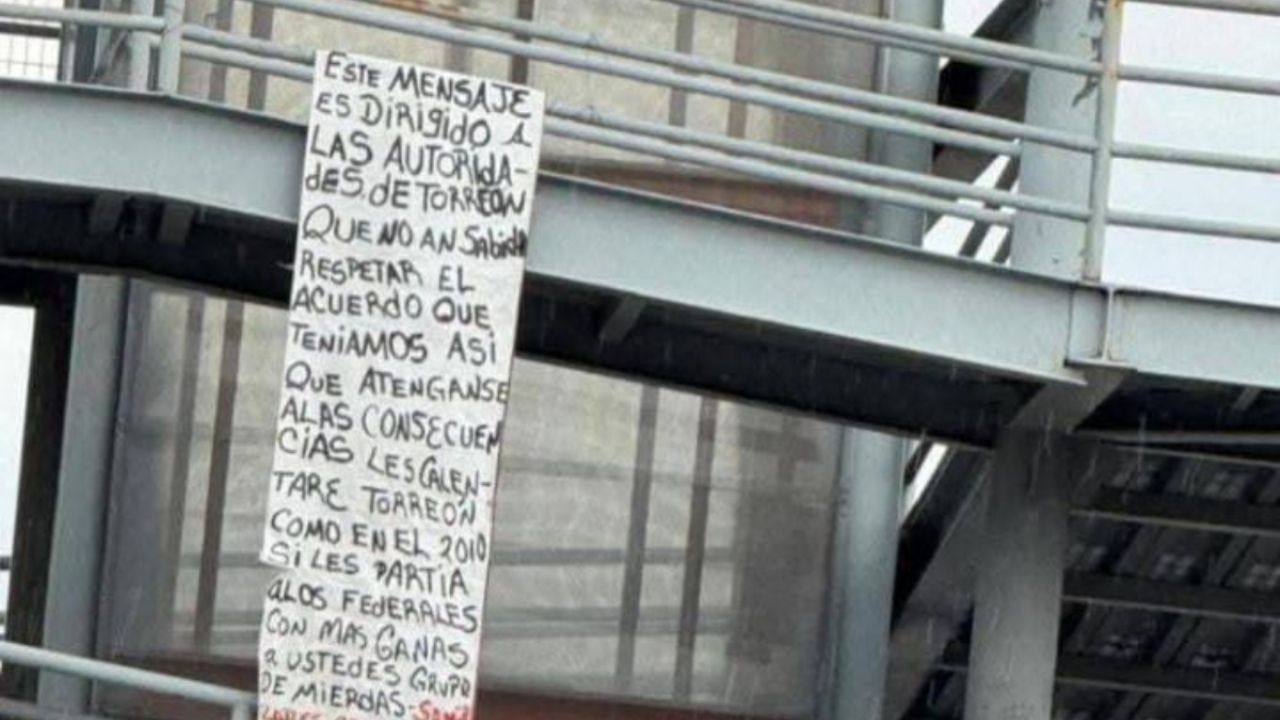 ESTE MENSAJE
ES DIRIGIDO A
LAS AUTORIDA-
DES. DE TORREÓN
QUE NO AN SABIDO
RESPETAR EL
ACUERDO QUE
TENIAMOS ASI
QUE ATENGANSE
ALAS CONSECUEN
CIAS LES CALEN-
TARE TORREÓN
COMO EN EL 2010
SI LES PARTIA
ALOS FEDERALES
CON MAS GANAS
A USTEDES GRUPO
DE MIERDAS-